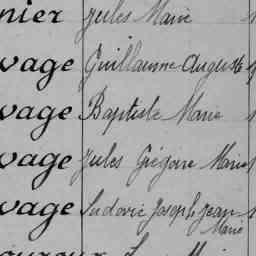 nier Jules Marie
vage Guillaume Auguste
vage Baptiste Marie
vage Jules Grégoire Marie
vage Ludovic Joseph Jean
Marie